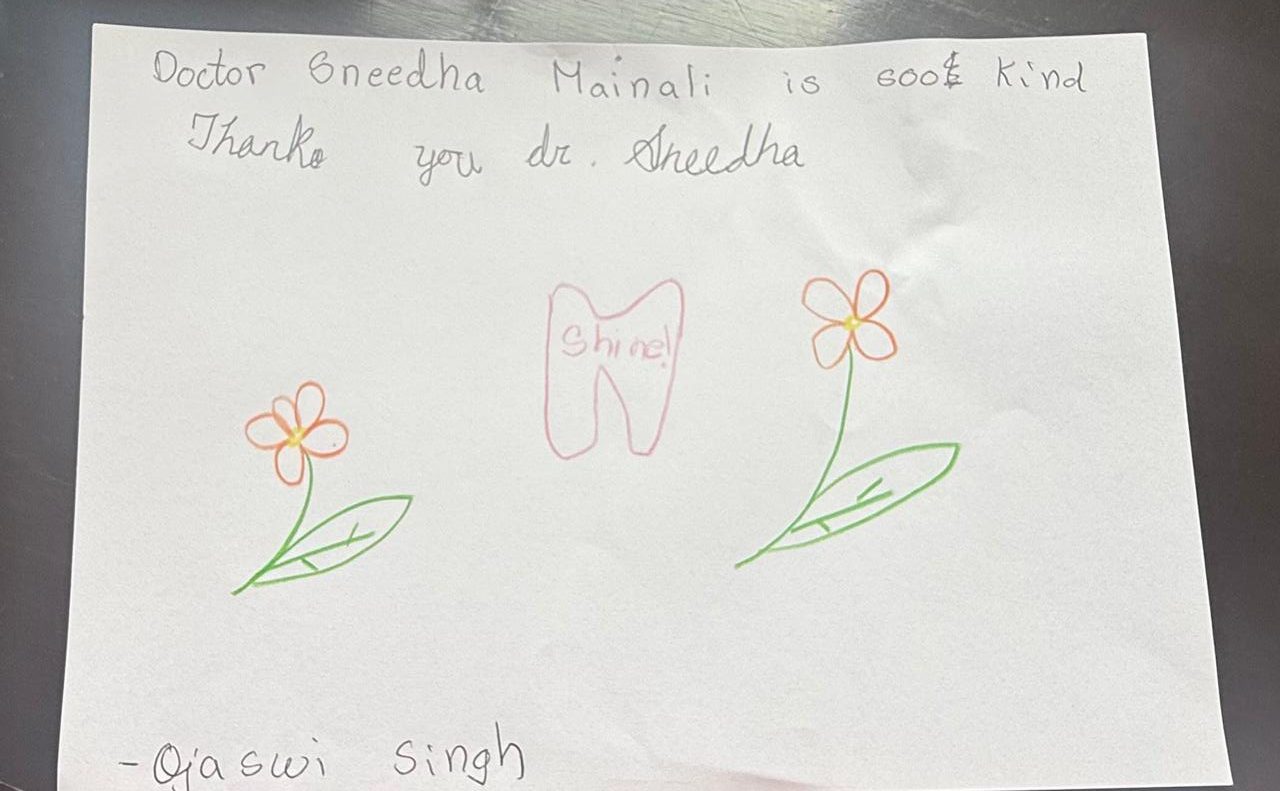 Doctor Sneedha Mainali is soo Kind
Thank you dr. Sneedha
Shine!
- Ojaswi Singh